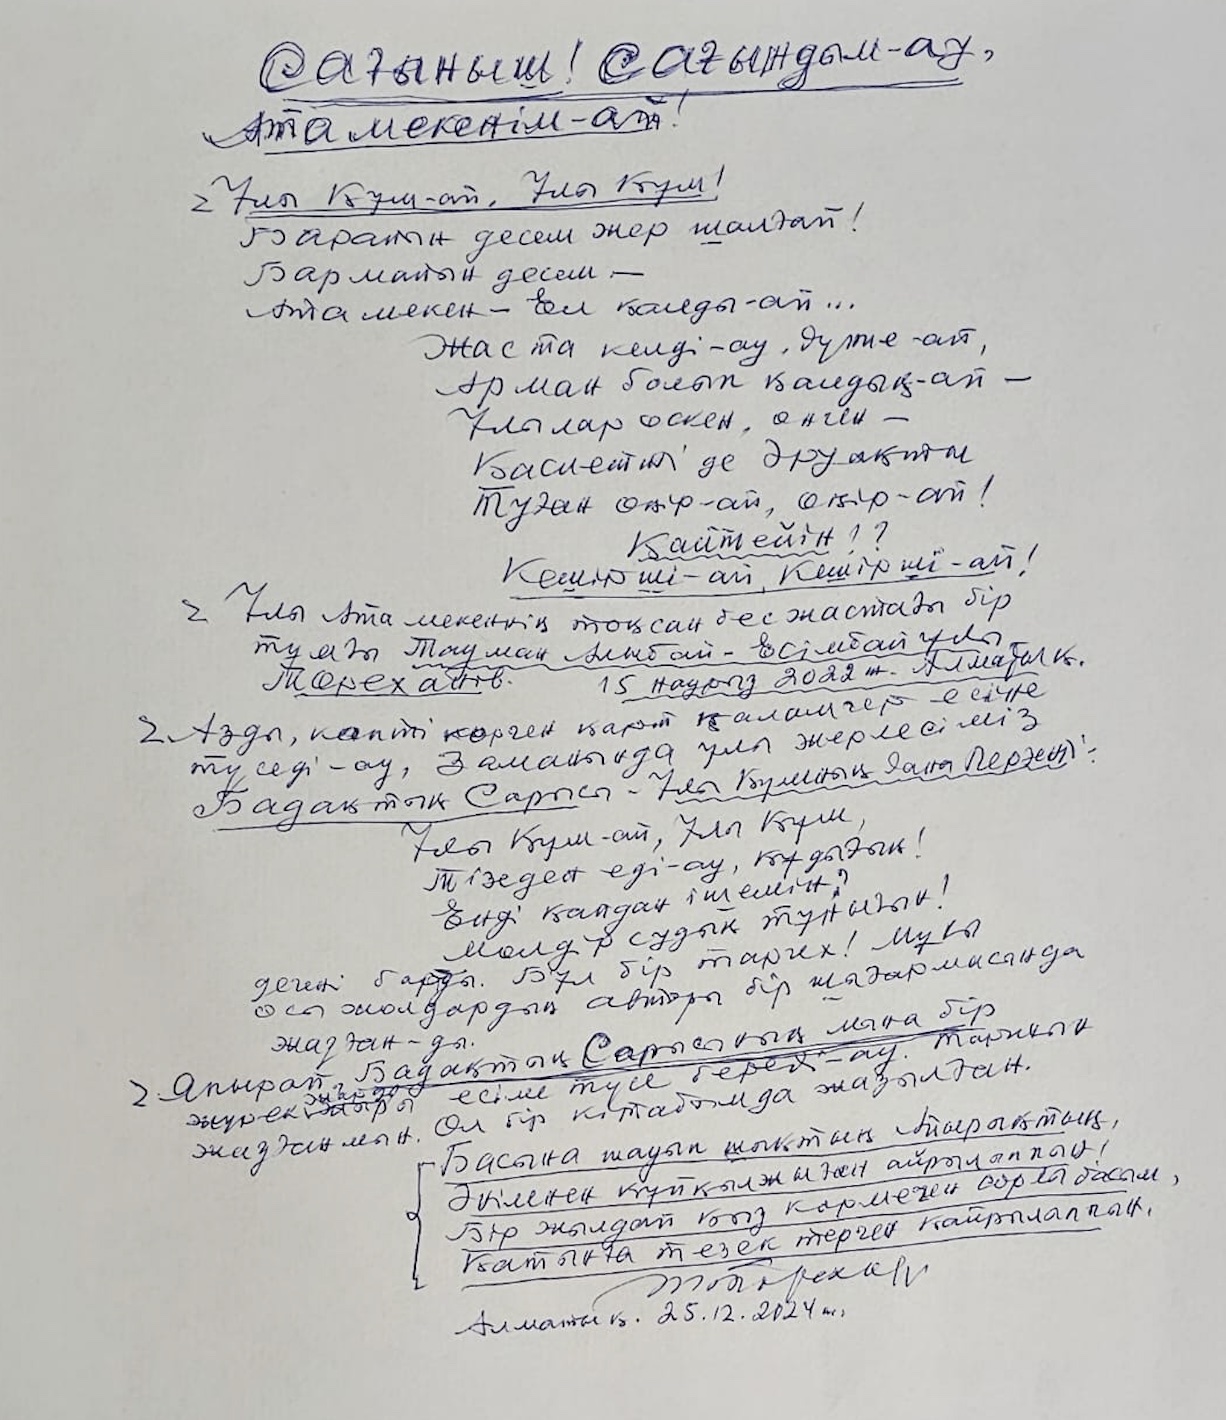 Сағыныш! Сағындым-ау,
Атамекенім-ай!
Ұлы Құм-ай, Ұлы Құм!
Барайын десем жер шалғай!
Бармайын десем —
Атамекен — Ел қалды-ай...
Жас та келді-ау, дүние-ай,
Арман болып қалдық-ай —
Ұлылар өскен, өнген —
Қасиетті де әруақты
Туған өңір-ай, өңір-ай!
Қайтейін!?
Кешірші-ай, Кешірші-ай!
Ұлы Атамекеннің тоқсан бес жастағы бір
тумағы Тауман Алыбай-Есімбайұлы
Төреханов. 15 наурыз 2022 ж. Алматы қ.
Азды, көпті көрген қарт қаламгер есіне
түседі-ау, Заманында ұлы жерлесіміз
Бадақтың Сарысы - Ұлы Құмның Дана Перзенті:
Ұлы Құм-ай, Ұлы Құм,
Тізеден еді-ау, құдығың!
Енді қайдан ішемін?
Мөлдір судың тұнығын!
дегені барды. Бұл бір тарих! Мұны
осы жолдардың авторы бір шығармасында
жазған-ды.
Япырай, Бадақтың Сарысының мына бір
жүрек жыры есіме түсе береді-ау. Тарихын
жазғанмын. Ол бір кітабымда жазылған.
Басына шауып шықтың Айырықтың,
Әкімнен құйқылжыған айрылаппын!
Бір жылдай қыз көрмеген сорлы басым,
Қатынға тезек терген қайрылаппын.
Алматы қ. 25.12.2024 ж.